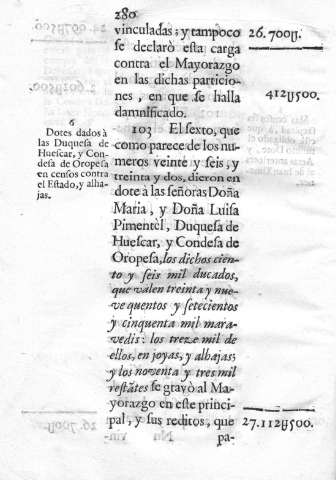 280
vinculadas; y tampoco
26.700ų.
se declarò esta carga
contra el Mayorazgo
en las dichas particio-
nes, en que se halla
412ų500.
damnificado.
6
Dotes dados à
las Duquesa de
Huescar, y Con-
desa de Oropesa
en censos contra
el Estado, y alha-
jas.
103 El sexto, que
como parece de los nu-
meros veinte y seis, y
treinta y dos, dieron en
dote à las señoras Doña
Maria, y Doña Luisa
Pimentèl, Duquesa de
Huescar, y Condesa de
Oropesa, los dichos cien-
to y seis mil ducados,
que valen treinta y nue-
ve quentos y setecientos
y cinquenta mil mara-
vedis: los treze mil de
ellos, en joyas, y alhajas;
y los noventa y tres mil
restātes se gravò al Ma-
yorazgo en este princi-
pal, y sus reditos, que
27.112ų500.
pa-